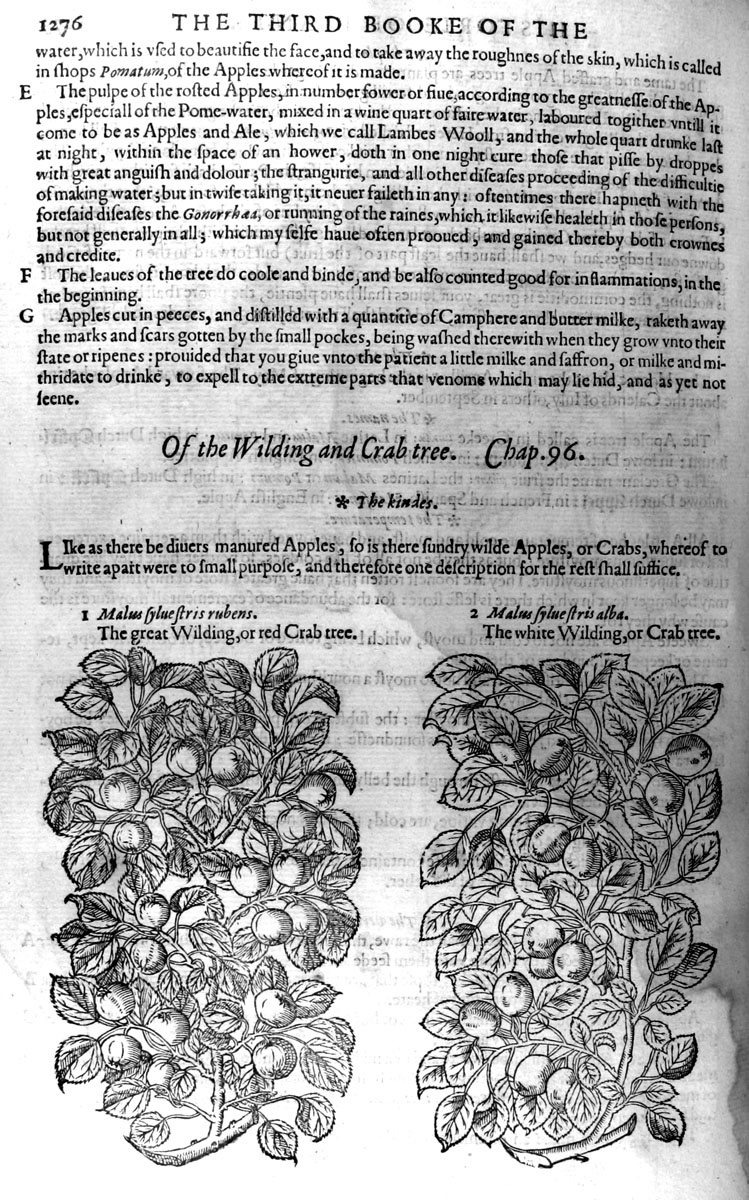 1276 THE THIRD BOOKE OF THE
water, which is vſed to beautifie the face, and to take away the roughnes of the skin, which is called
in ſhops Pomatum, of the Apples whereof it is made.
E The pulpe of the roſted Apples, in number fower or fiue, according to the greatneſſe of the Ap-
ples, eſpeciall of the Pome-water, mixed in a wine quart of faire water, laboured togither vntill it
come to be as Apples and Ale, which we call Lambes Wooll, and the whole quart drunke laſt
at night, within the ſpace of an hower, doth in one night cure thoſe that piſſe by droppes
with great anguiſh and dolour; the ſtrangurie, and all other diſeaſes proceeding of the difficultie
of making water; but in twiſe taking it, it neuer faileth in any: oftentimes there hapneth with the
foreſaid diſeaſes the Gonorrhæa, or running of the raines, which it likewiſe healeth in thoſe perſons,
but not generally in all; which my ſelfe haue often prooued, and gained thereby both crownes
and credite.
F The leaues of the tree do coole and binde, and be alſo counted good for inflammations, in the
the beginning.
G Apples cut in peeces, and diſtilled with a quantitie of Camphere and butter milke, taketh away
the marks and ſcars gotten by the ſmall pockes, being waſhed therewith when they grow vnto their
ſtate or ripenes: prouided that you giue vnto the patient a little milke and ſaffron, or milke and mi-
thridate to drinke, to expell to the extreme parts that venome which may lie hid, and as yet not
ſeene.
Of the Wilding and Crab tree. Chap. 96.
* The kindes.
LIke as there be diuers manured Apples, ſo is there ſundry wilde Apples, or Crabs, whereof to
write apart were to ſmall purpoſe, and therefore one deſcription for the reſt ſhall ſuffice.
1 Malus ſylueſtris rubens.
The great Wilding, or red Crab tree.
2 Malus ſylueſtris alba.
The white Wilding, or Crab tree.